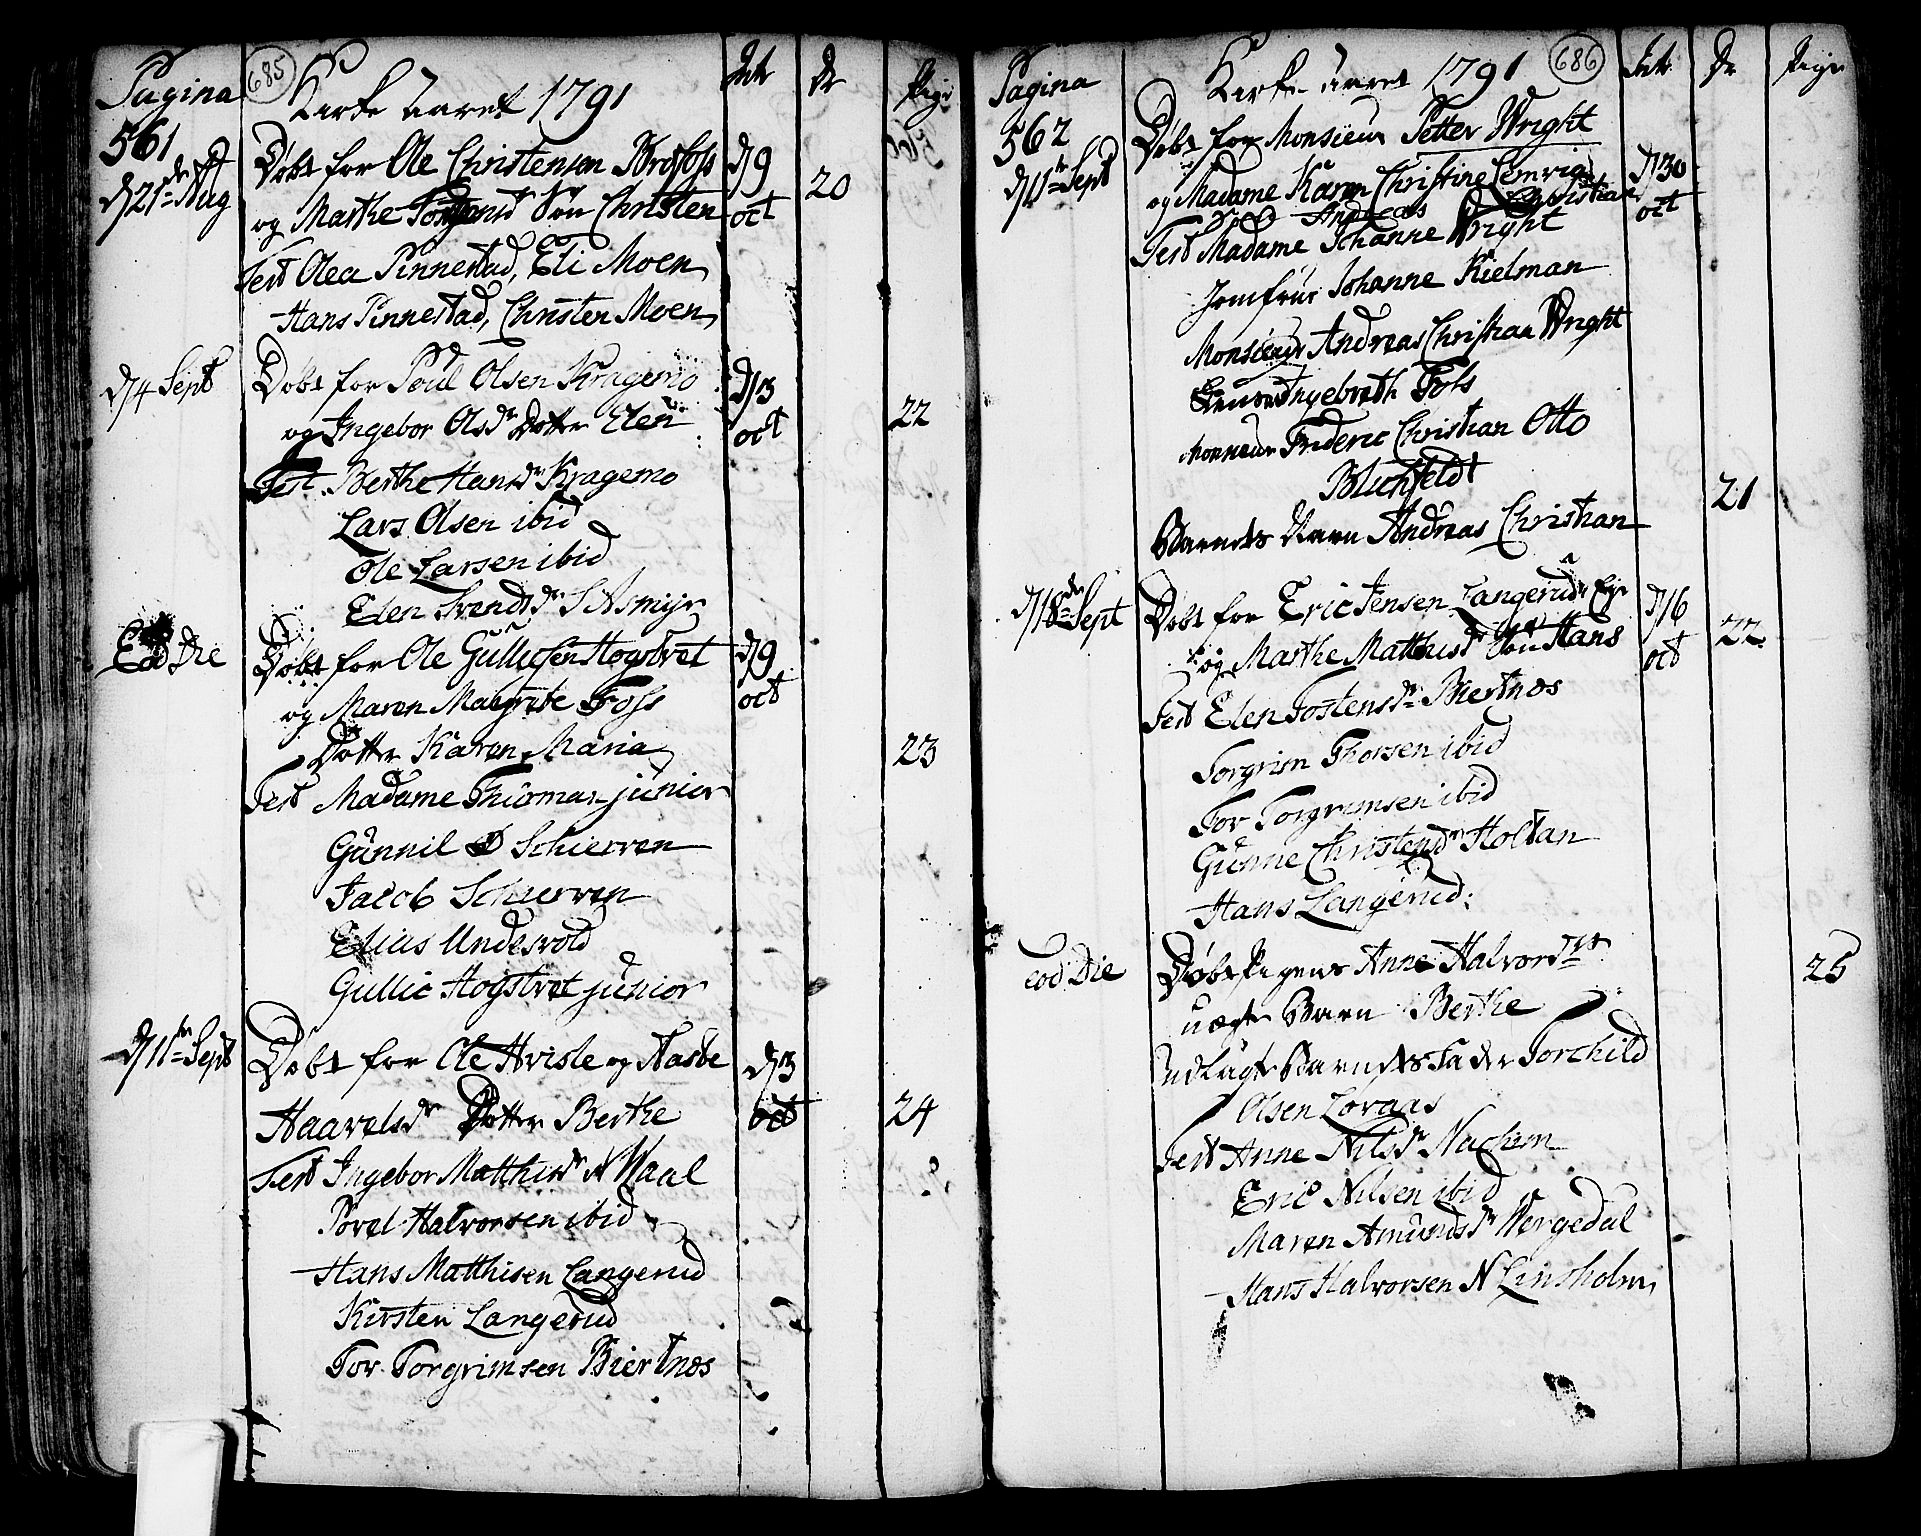 Pagina 685 Kirke Aaret 1791 Int Dr Pige
561
d 21de Aug Døbt for Ole Christensen Brofoss d 9 20
og Marthe Torgersdr Søn Christen oct
Test Olea Pinnestad, Eli Moen
Hans Pinnestad, Christen Moen
d 4 Sept Døbt for Poul Olsen Kragemo d 13
og Ingebor Olsdr Dotter Elen oct 22
Test Berthe Hansdr Kragemo
Lars Olsen ibid
Ole Larsen ibid
Elen Svendsdr
Eod Die Døbt for Ole Gullicsen Hogstvet d 9
og Maren Margrete Foss oct
Dotter Karen Maria 23
Test Madame Thomas junior
Gunnil Schierven
Jacob Schierven
Elias Undesvold
Gullic Hogstvet junior
d 11te Sept Døbt for Ole Hvisle og Aasbe d 13
Haavelsdr Dotter Berthe oct 24
Test Ingebor Matthisdr N Waal
Povel Halvorsen ibid
Hans Matthisen Langerud
Kirsten Langerud
Tor Torgrimsen Biertnæs
Pagina Kirke aaret 1791 686 Int Dr Pige
562 Døbt for Monsieur Petter Wright
d 11te Sept og Madame Karen Christine Lemvig d 30
Andreas Christian oct
Test Madame Johanne Wright
Jomfrue Johanne Kielman
Monsieur Andreas Christian Wright
Ingebreth Fos
Monsieur Frideric Christian Otto
Blichfeldt 21
Barnets Navn Andreas Christian
d 18de Sept Døbt for Eric Jensen Langerud Eje d 16
og Marthe Matthisdr Søn Hans oct 22
Test Elen Tostensdr Biertnæs
Torgrim Thorsen ibid
Tor Torgrimsen ibid
Gunne Christensdr Holtan
Hans Langerud
eod Die Døbt Pigens Anne Halvorsdrs 25
uægte Barn Berthe
Udlagt Barnets Fader Torchild
Olsen Loraas
Test Anne Nilsdr Nachim
Eric Nilsen ibid
Maren Amundsdr Wergedal
Hans Halvorsen N Linsholm